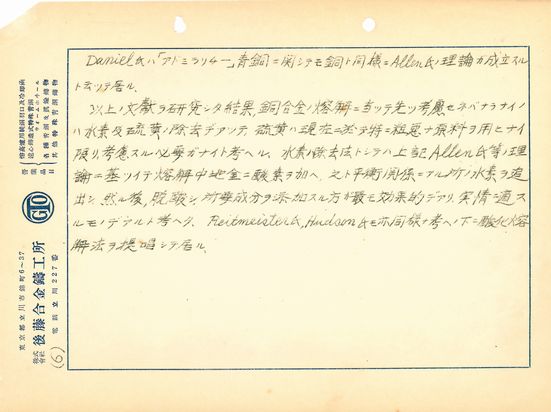 Daniel氏ハ「アドミラリチー」青銅ニ関シテモ銅ト同様ニAllen氏ノ理論ガ成立スル
ト云ツテ居ル.
以上ノ文献ヲ研究シタ結果,銅合金ノ熔解ニ当ツテ先ヅ考慮セネバナラナイノ
ハ水素及硫黄ノ除去デアツテ,硫黄ハ現在ニ於テ特ニ粗悪ナ原料ヲ用ヒナイ
限リ考慮スル必要ガナイト考ヘル. 水素ノ除去法トシテハ上記Allen氏等ノ理
論ニ基ツイテ熔解中地金ニ酸素ヲ加ヘ,之ト平衡関係ニアル所ノ水素ヲ追
出シ,然ル後,脱酸シ,所要成分ヲ添加スル方ガ最モ効果的デアリ,実情ニ適ス
ルモノデアルト考ヘタ. Reitmeister氏,Hudson氏モ亦同様ナ考ヘノ下ニ酸化熔
解法ヲ提唱シテ居ル.
営業品目
各種特殊鋳物
其他特殊青銅
GTO
株式会社 後藤合金鑄工所
東京都立川市錦町6~37
電話立川227番
(6)